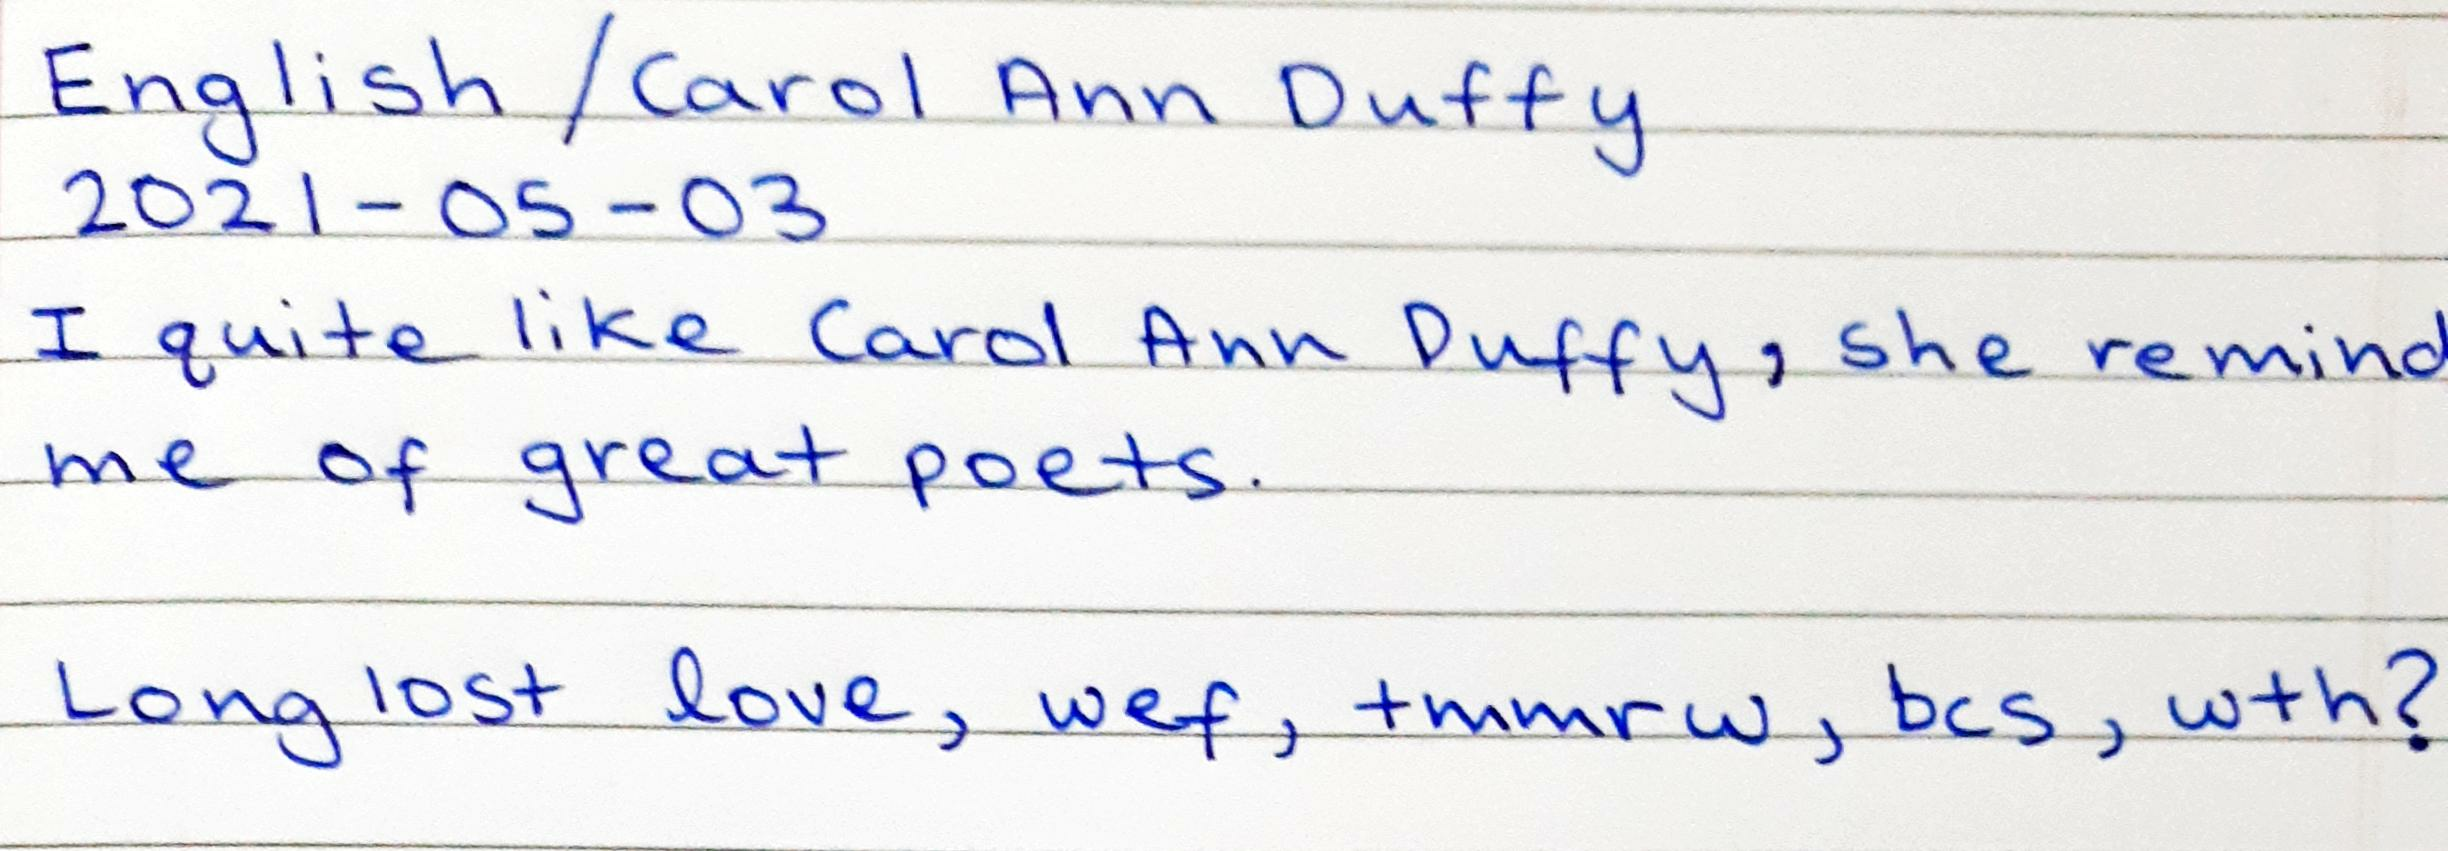 English / Carol Ann Duffy
2021-05-03
I quite like Carol Ann Duffy, she remind
me of great poets.
Long lost love, wef, tmmrw, bcs, wth?